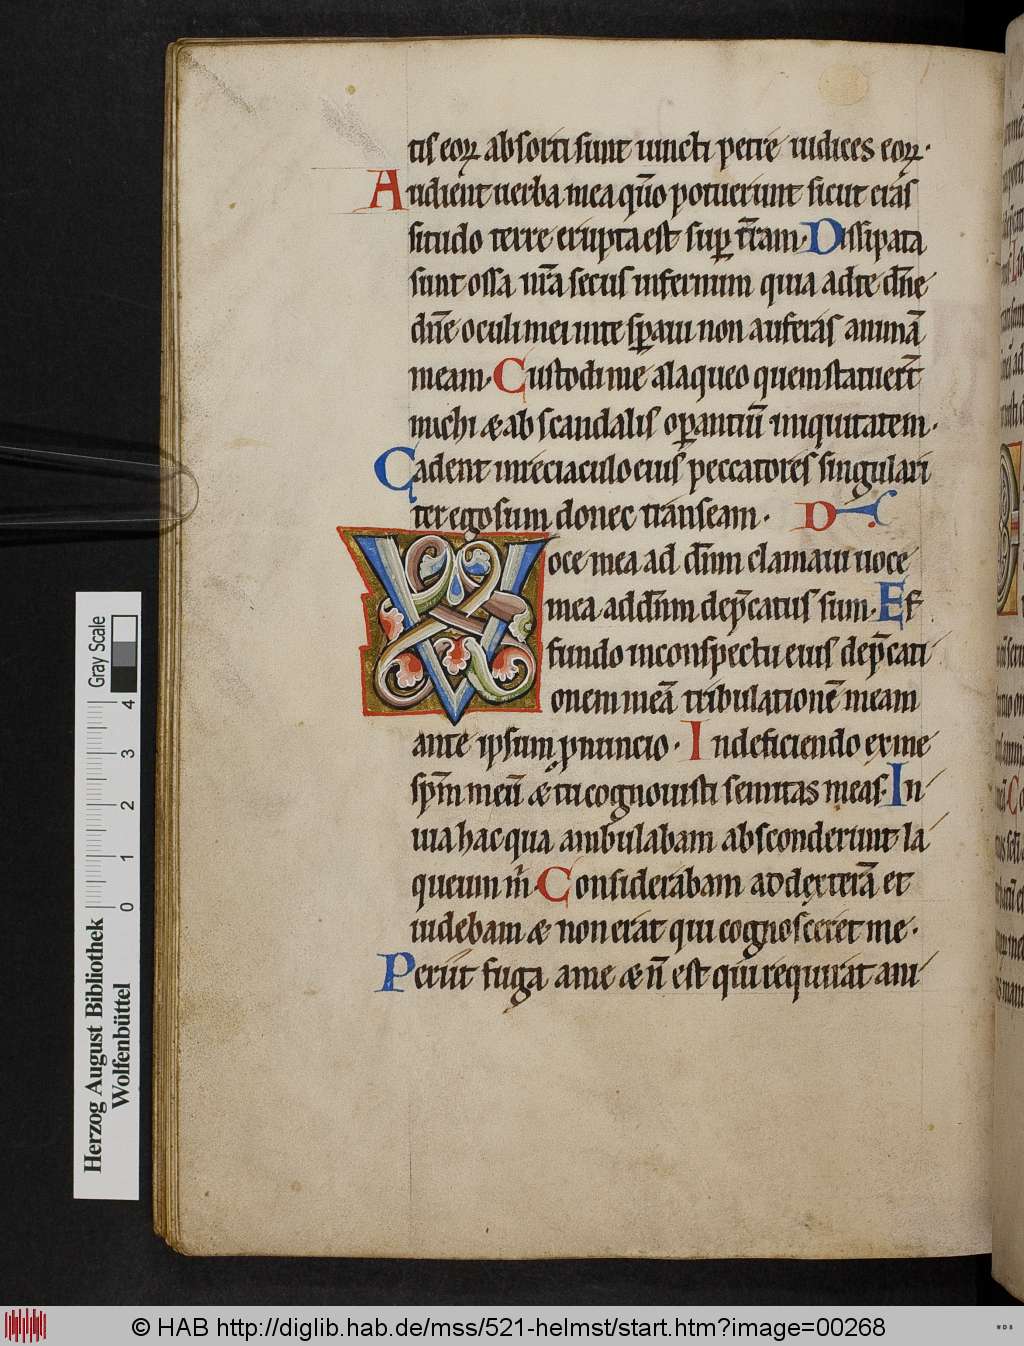 tis eoꝝ absorti sunt iuncti petre iudices eoꝝ.
Audient uerba mea qm̄o potuerunt sicut cras
situdo terre erupta est sup̄ tr̄ram. Dissipata
sunt ossa nr̄a secus infernum quia ad te dn̄e
dn̄e oculi mei in te sꝑaui non auferas animā
meam. Custodi me a laqueo quem statuerт̄
michi & ab scandalis oꝑantiū iniquitatem.
Cadent in reciaculo eius peccatores singulari
ter ego sum donec transeam. D
Voce mea ad dn̄m clamaui uoce
mea ad dn̄m dep̄catus sum. Ef
fundo in conspectu eius dep̄cati
onem meā tribulationē meam
ante ipsum ꝓnuncio. In deficiendo ex me
spm̄ meū & tu cognouisti semitas meas. In
uia hac qua ambulabam absconderunt la
queum m̄. Considerabam ad dexterā et
uidebam & non erat qui cognosceret me.
Periit fuga a me & n̄ est qui requirat ani
Gray Scale
0 1 2 3 4
Herzog August Bibliothek
Wolfenbüttel
© HAB http://diglib.hab.de/mss/521-helmst/start.htm?image=00268